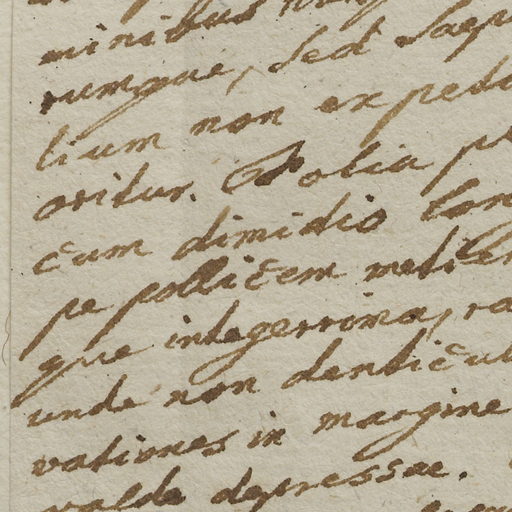 minibus
rumque, sed saep
tium non ex pedu
oritur. Folia pe
cum dimidio lon
pe pollicem metien
que integerrima, ra
unde non denticul
vationes in margine
valde depressae.